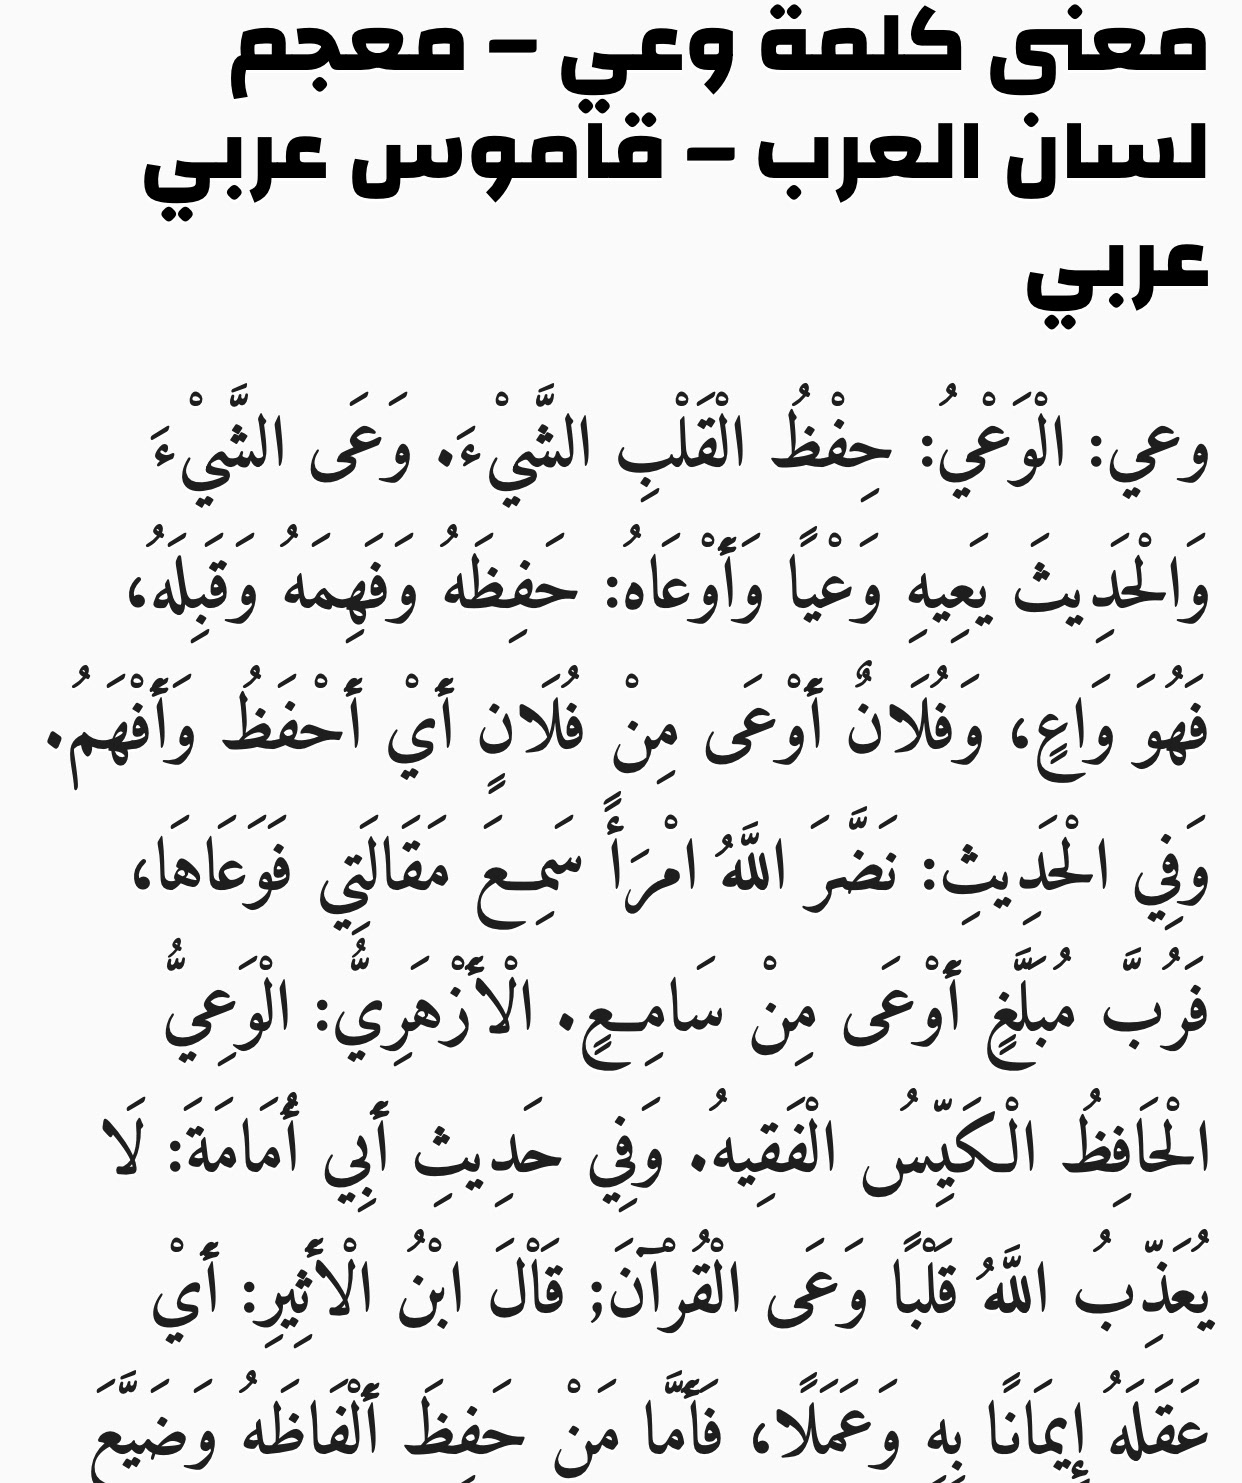 معنى كلمة وعي – معجم
لسان العرب – قاموس عربي
عربي
وعي: الْوَعْيُ: حِفْظُ الْقَلْبِ الشَّيْءَ. وَعَى الشَّيْءَ
وَالْحَدِيثَ يَعِيهِ وَعْيًا وَأَوْعَاهُ: حَفِظَهُ وَفَهِمَهُ وَقَبِلَهُ،
فَهُوَ وَاعٍ، وَفُلَانٌ أَوْعَى مِنْ فُلَانٍ أَيْ أَحْفَظُ وَأَفْهَمُ.
وَفِي الْحَدِيثِ: نَضَّرَ اللَّهُ امْرَأً سَمِعَ مَقَالَتِي فَوَعَاهَا،
فَرُبَّ مُبَلَّغٍ أَوْعَى مِنْ سَامِعٍ. الْأَزْهَرِيُّ: الْوَعِيُّ
الْحَافِظُ الْكَيِّسُ الْفَقِيهُ. وَفِي حَدِيثِ أَبِي أُمَامَةَ: لَا
يُعَذِّبُ اللَّهُ قَلْبًا وَعَى الْقُرْآنَ; قَالَ ابْنُ الْأَثِيرِ: أَيْ
عَقَلَهُ إِيمَانًا بِهِ وَعَمَلًا، فَأَمَّا مَنْ حَفِظَ أَلْفَاظَهُ وَضَيَّعَ